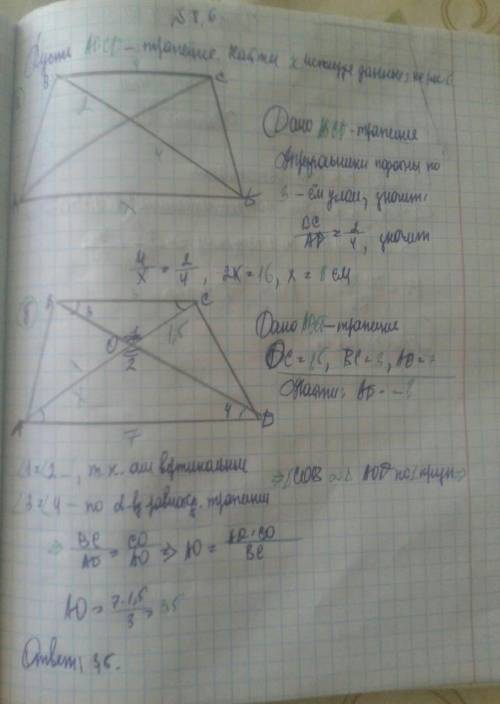 8,6.
Пусть ABCD - трапеция. Найти x используя данные на рис (
B
4
C
2
4
x
Дано ABCD - трапеция
Треугольники подобны по
3 - ём углам, значит:
BC/AD = 2/4, значит
4/x = 2/4, 2x = 16, x = 8 см
B
3
C
3
1,5
O
1
2
x
A
4
D
7
Дано ABCD - трапеция
OC = 1,5, BC = 3, AD = 7
Найти: AO - ?
∠1 = ∠2 -, т.к. они вертикальные
∠3 = ∠4 - по трапеции
⇒ △COB ∼ △ AOD по
⇒ BC/AD = CO/AO ⇒ AO = AD·CO/BC
AO = 7·1,5/3 = 3,5
Ответ: 3,5.